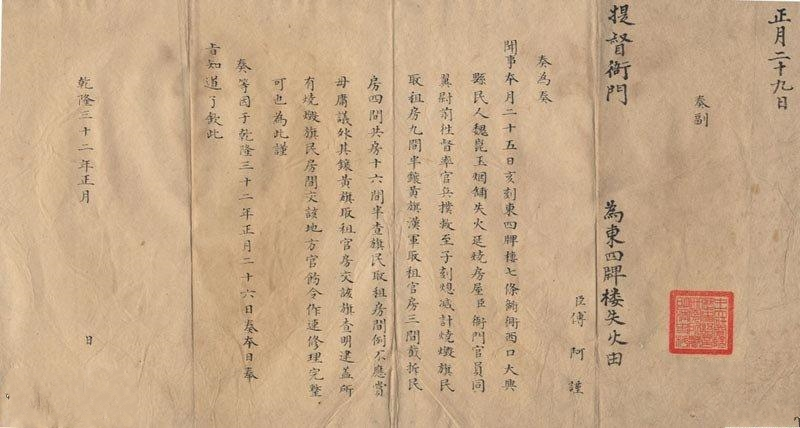 正月二十九日
奏副
提督衙門 為東四牌楼失火由
臣傅 阿 謹
奏為奏
聞事本月二十五日亥刻東四牌樓七條衚衕西口大興
縣民人魏崑玉烟舖失火延燒房屋臣衙門官員同
翼尉前往督率官兵撲救至子刻熄滅計燒燬旗民
取租房九間半鑲黃旗漢軍取租官房三間截拆民
房四間共房十六間半查旗民取租房間例不應賞
毋庸議外其鑲黃旗取租官房交該旗查明建蓋所
有燒燬旗民房間交該地方官飭令作速修理完整
可也為此謹
奏等因于乾隆三十二年正月二十六日奏本日奉
旨知道了欽此
乾隆三十二年正月 日